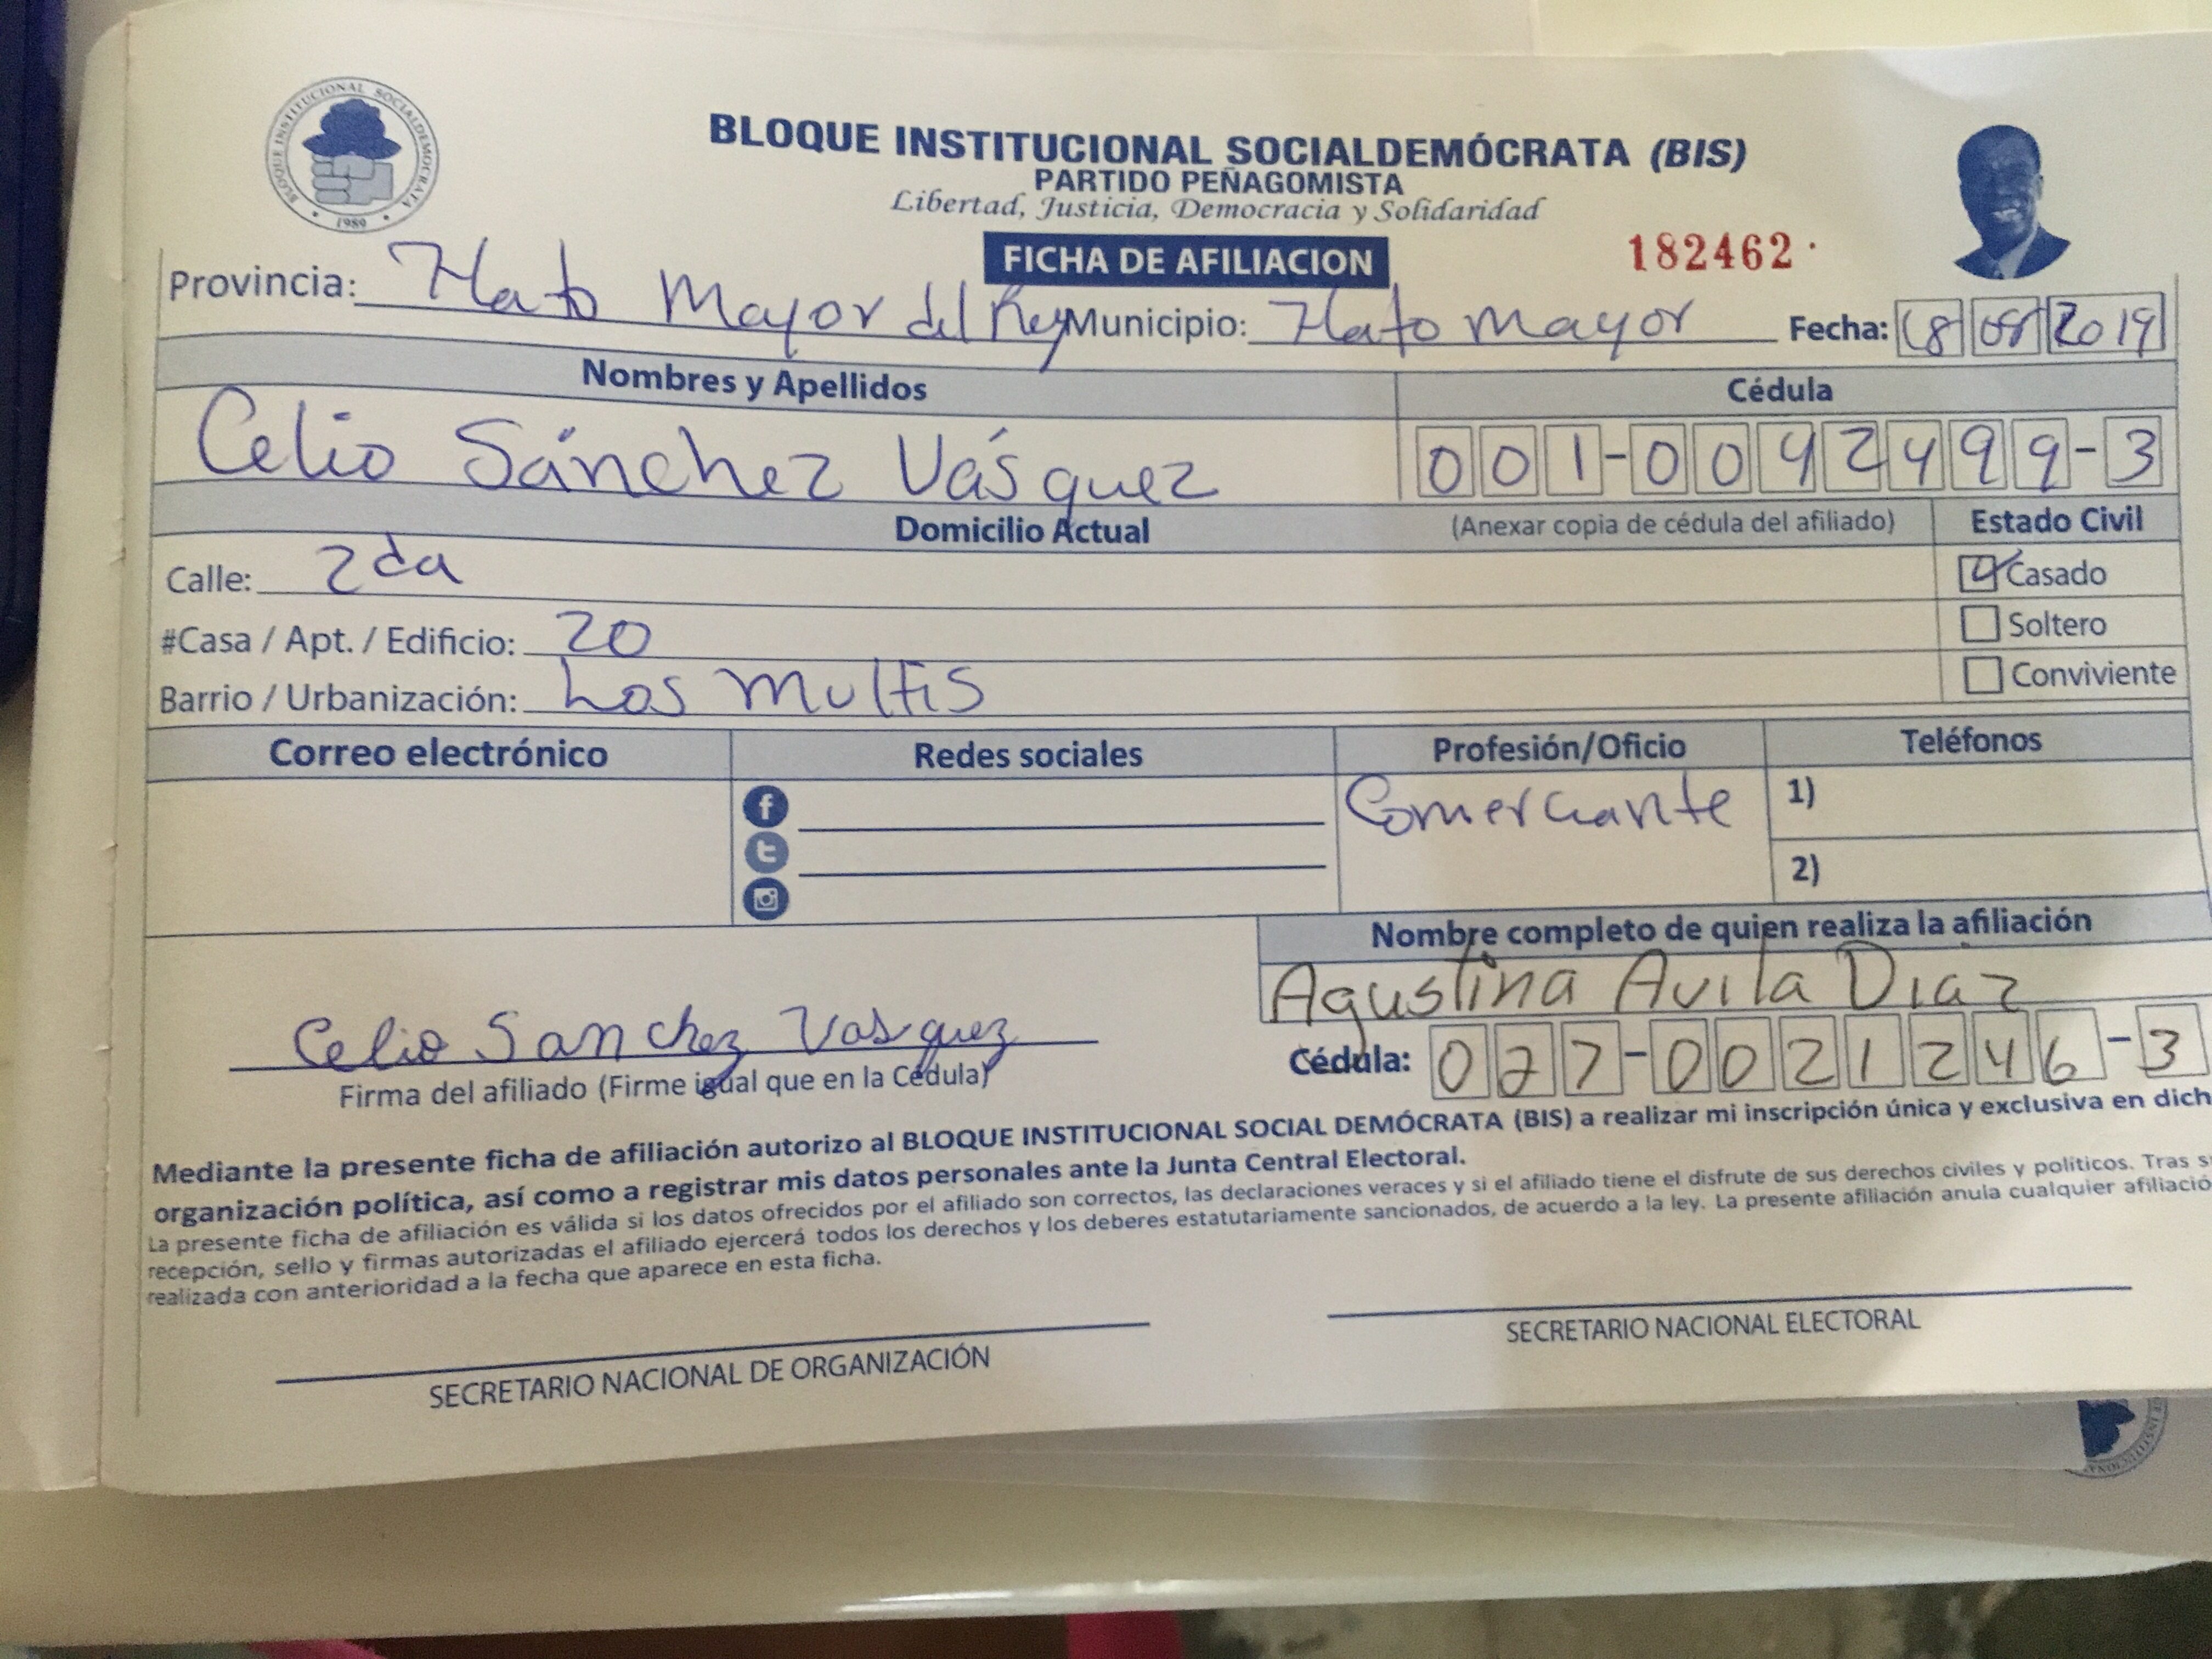 BLOQUE INSTITUCIONAL SOCIALDEMOCRATA
1989
BLOQUE INSTITUCIONAL SOCIALDEMÓCRATA (BIS)
PARTIDO PEÑAGOMISTA
Libertad, Justicia, Democracia y Solidaridad
FICHA DE AFILIACION
182462
Provincia: Hato Mayor del Rey Municipio: Hato mayor Fecha: 18 08 2019
Nombres y Apellidos Cédula
Celio Sánchez Vásquez 001-0042499-3
Domicilio Actual (Anexar copia de cédula del afiliado) Estado Civil
Calle: 2da Casado
#Casa / Apt. / Edificio: 20 Soltero
Barrio / Urbanización: Los Multis Conviviente
Correo electrónico Redes sociales Profesión/Oficio Teléfonos
Comerciante 1)
2)
Nombre completo de quien realiza la afiliación
Agustina Avila Diaz
Celio Sanchez Vasquez
Cédula: 027-0021246-3
Firma del afiliado (Firme igual que en la Cedula)
Mediante la presente ficha de afiliación autorizo al BLOQUE INSTITUCIONAL SOCIAL DEMÓCRATA (BIS) a realizar mi inscripción única y exclusiva en dich
organización política, así como a registrar mis datos personales ante la Junta Central Electoral.
La presente ficha de afiliación es válida si los datos ofrecidos por el afiliado son correctos, las declaraciones veraces y si el afiliado tiene el disfrute de sus derechos civiles y políticos. Tras s
recepción, sello y firmas autorizadas el afiliado ejercerá todos los derechos y los deberes estatutariamente sancionados, de acuerdo a la ley. La presente afiliación anula cualquier afiliació
realizada con anterioridad a la fecha que aparece en esta ficha.
SECRETARIO NACIONAL DE ORGANIZACIÓN
SECRETARIO NACIONAL ELECTORAL